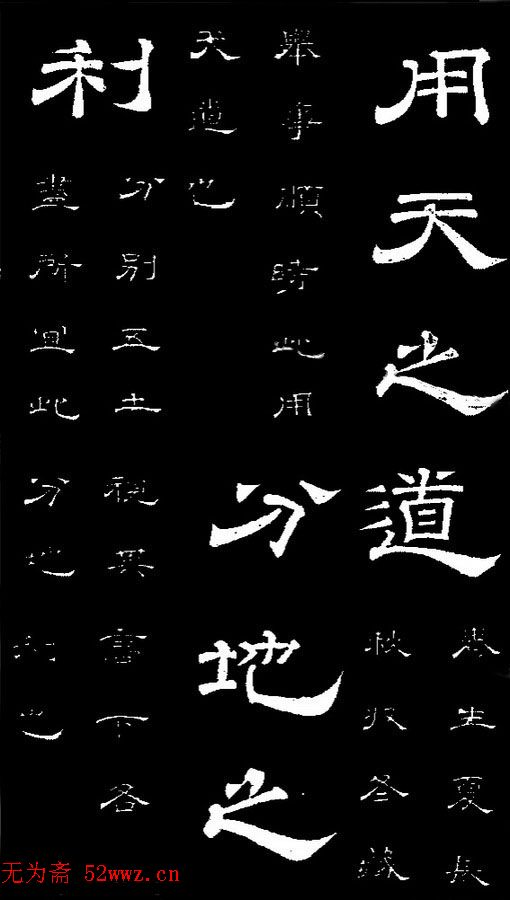 用天之道
春生夏長
秋收冬藏
舉事順時此用
天道也
分地之
利
分別五土視其高下各
盡所宜此分地利也
无为斋 52wwz.cn